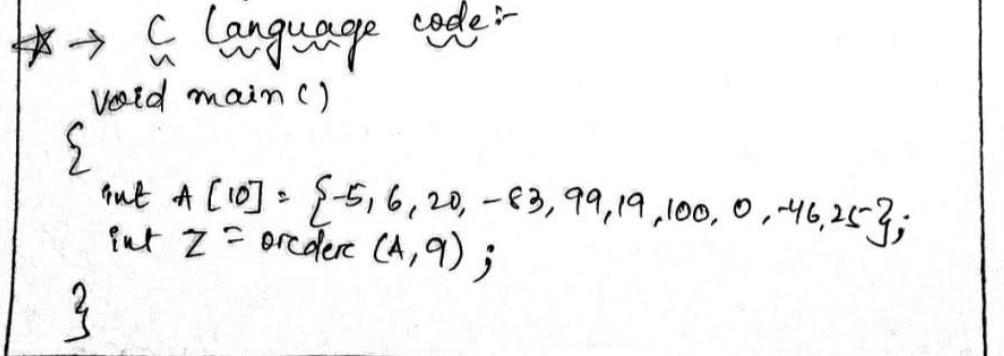 ☆ → C Language code:-
void main()
{
int A[10] = {-5, 6, 20, -83, 99, 19, 100, 0, -46, 25};
int Z = orcderc (A, 9);
}